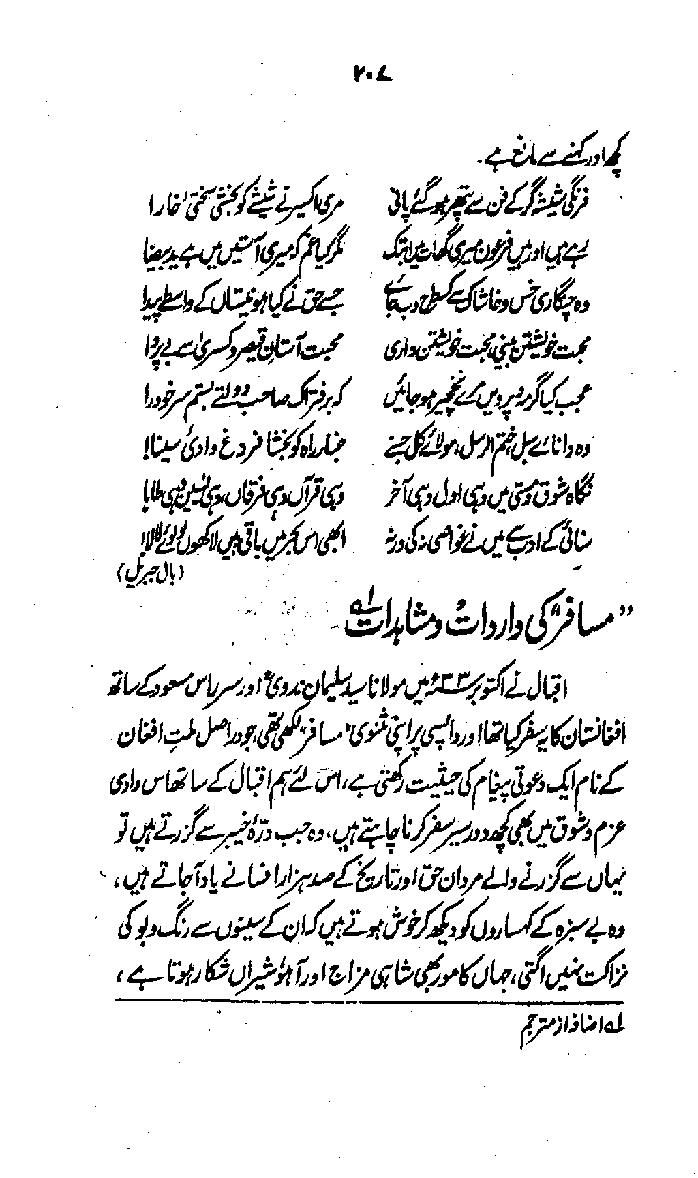 ۲۰۷
کچھ اور کہنے سے مانع ہے۔
فرنگی شیشہ گر کے فن سے پتھر ہو گئے پانی مری اکسیر نے شیشے کو بخشی سختی خارا
رہے ہیں اور ہیں فرعون میری گھات میں ابتک مگر کیا غم کہ میری آستیں میں ہے ید بیضا
وہ چنگاری خس و خاشاک سے کسطرح دب جائے جسے حق نے کیا ہو نیستاں کے واسطے پیدا
محبت خویشتن بینی، محبت خویشتن داری محبت آستان قیصر و کسریٰ سے بے پروا
عجب کیا گر مہ و پرویں مرے نخچیر ہو جائیں کہ بر فتراک صاحب دولتے بستم سر خود را
وہ دانائے سبل، ختم الرسل، مولائے کل جس نے غبار راہ کو بخشا فروغ وادیٔ سینا!
نگاہ شوق و مستی میں وہی اول وہی آخر وہی قرآں، وہی فرقاں، وہی یٰسین وہی طٰہٰ!
سنائی کے ادب سے میں نے غواصی نہ کی ورنہ ابھی اس بحر میں باقی ہیں لاکھوں لولوئے لالا!
(بال جبریل)
"مسافر" کی واردات و مشاہدات لہ
اقبال نے اکتوبر ۱۹۳۳ء میں مولانا سید سلیمان ندوی اور سر راس مسعود کے ساتھ
افغانستان کا یہ سفر کیا تھا اور واپسی پر اپنی مثنوی "مسافر" لکھی تھی، جو دراصل ملت افغان
کے نام ایک دعوتی پیغام کی حیثیت رکھتی ہے، اس لئے ہم اقبال کے ساتھ اس وادی
عزم و شوق میں بھی کچھ دور سیر سفر کرنا چاہتے ہیں، وہ جب درّہ خیبر سے گزرتے ہیں تو
یہاں سے گزرنے والے مردان حق اور تاریخ کے صد ہزار افسانے یاد آجاتے ہیں،
وہ بے سبزہ کے کہساروں کو دیکھ کر خوش ہوتے ہیں کہ ان کے سینوں سے رنگ و بو کی
نزاکت نہیں اگتی، جہاں کا مور بھی شاہی مزاج اور آہو شیراں شکار ہوتا ہے،
لہ اضافہ از مترجم